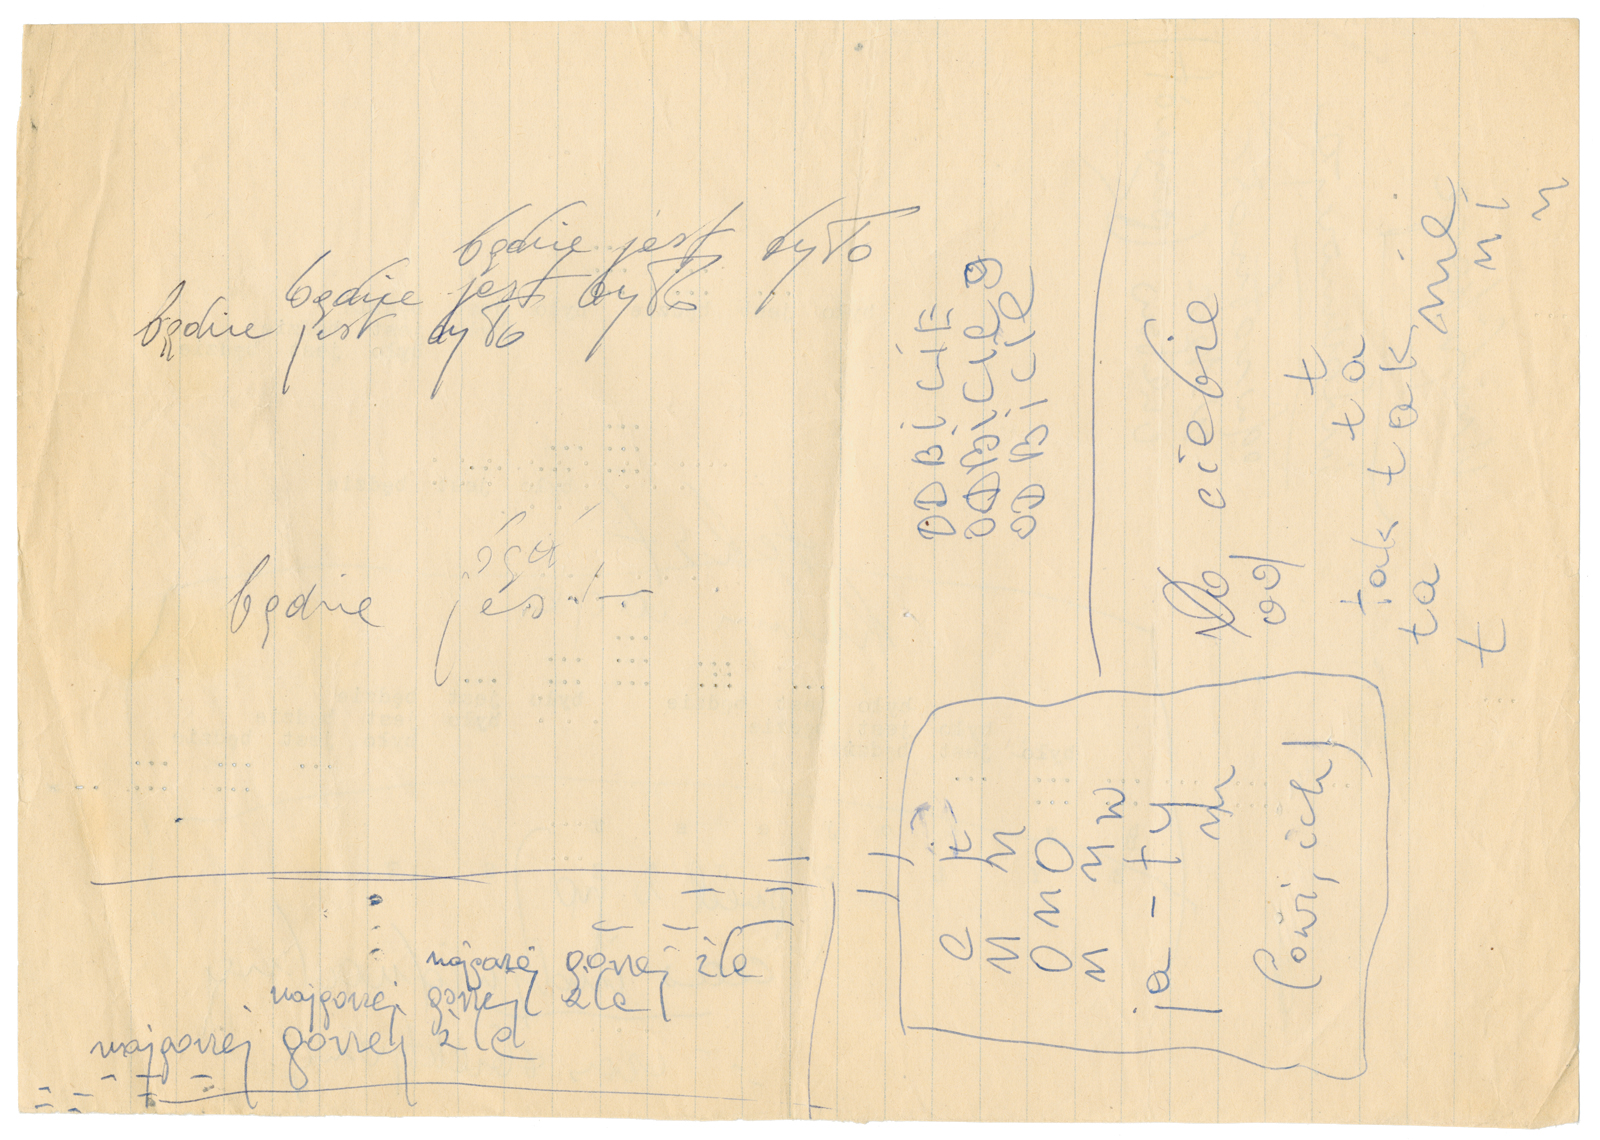 będzie jest było
będzie jest było
będzie jest było
będzie jest
najgorzej gorzej źle
najgorzej gorzej źle
najgorzej gorzej źle
ODBICIE
ODBICIE
ODBICIE
do ciebie
od
t
ta
tak tak nie
ta ni
t n
e k
n n
ono
n n w
ja - ty